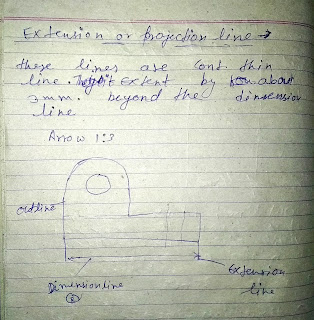 Extension or projection line →
these lines are cont thin
line. It Extent by about
3mm. beyond the dimension
line
Arrow 1:3
outline
Dimensionline
Extension
line